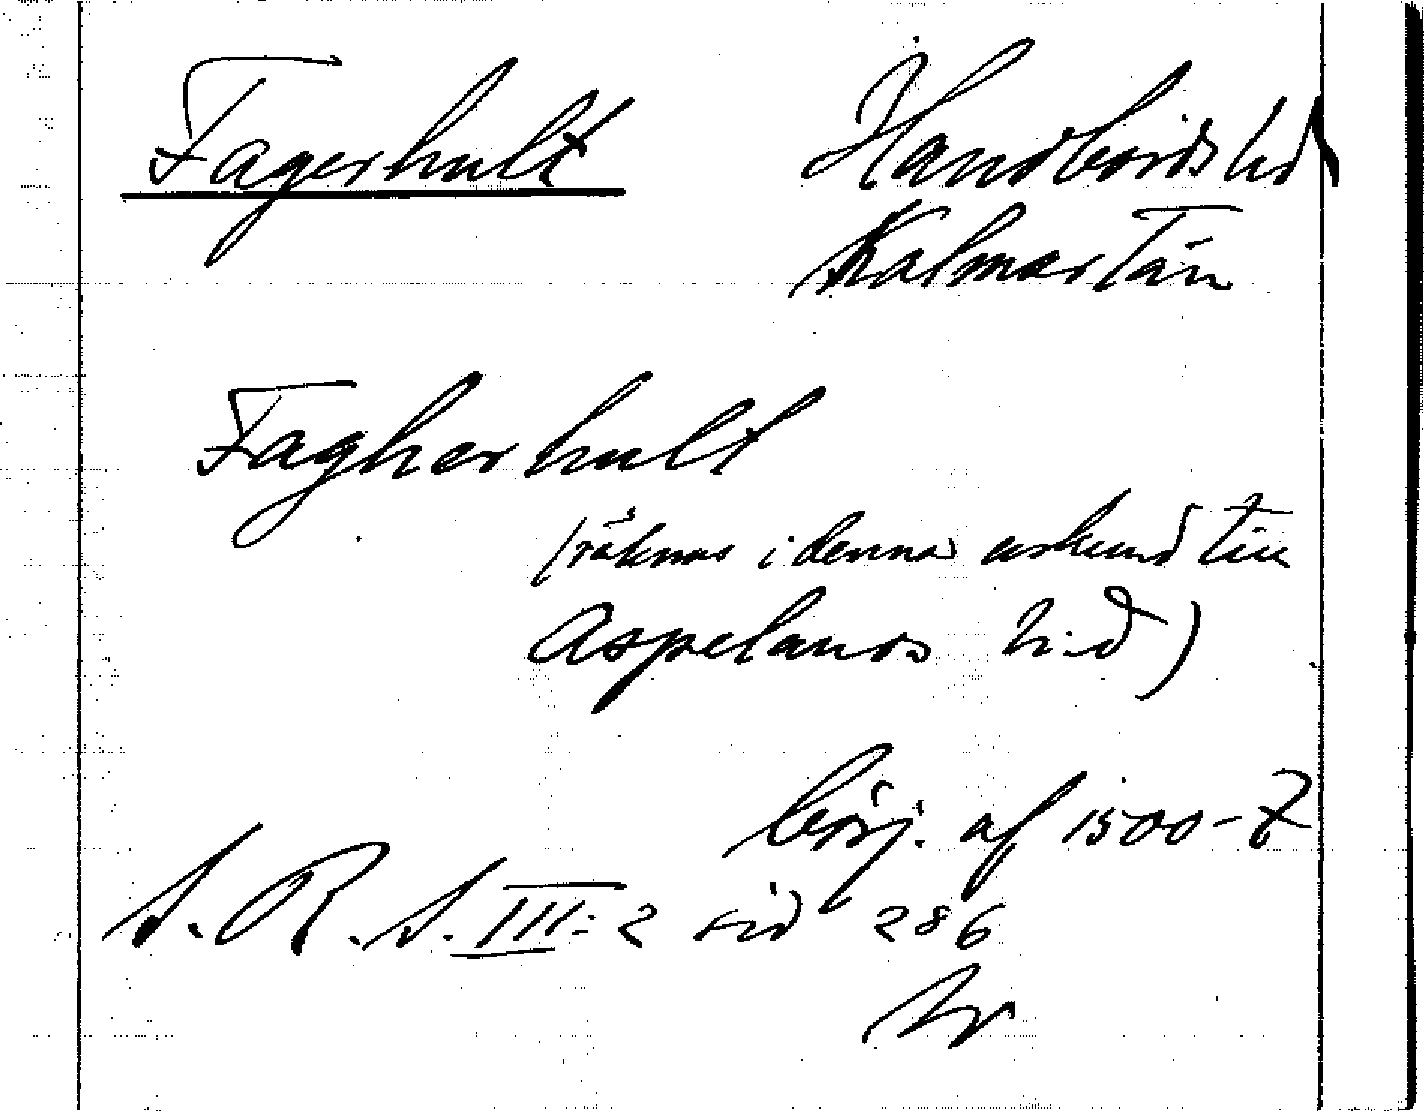 Fagerhult Handbörds hd
Kalmar län
Fagherhult
(räknas i denna urkund till
Aspelands h:d)
börj. af 1500-t
S. R. S. III:2 sid 286